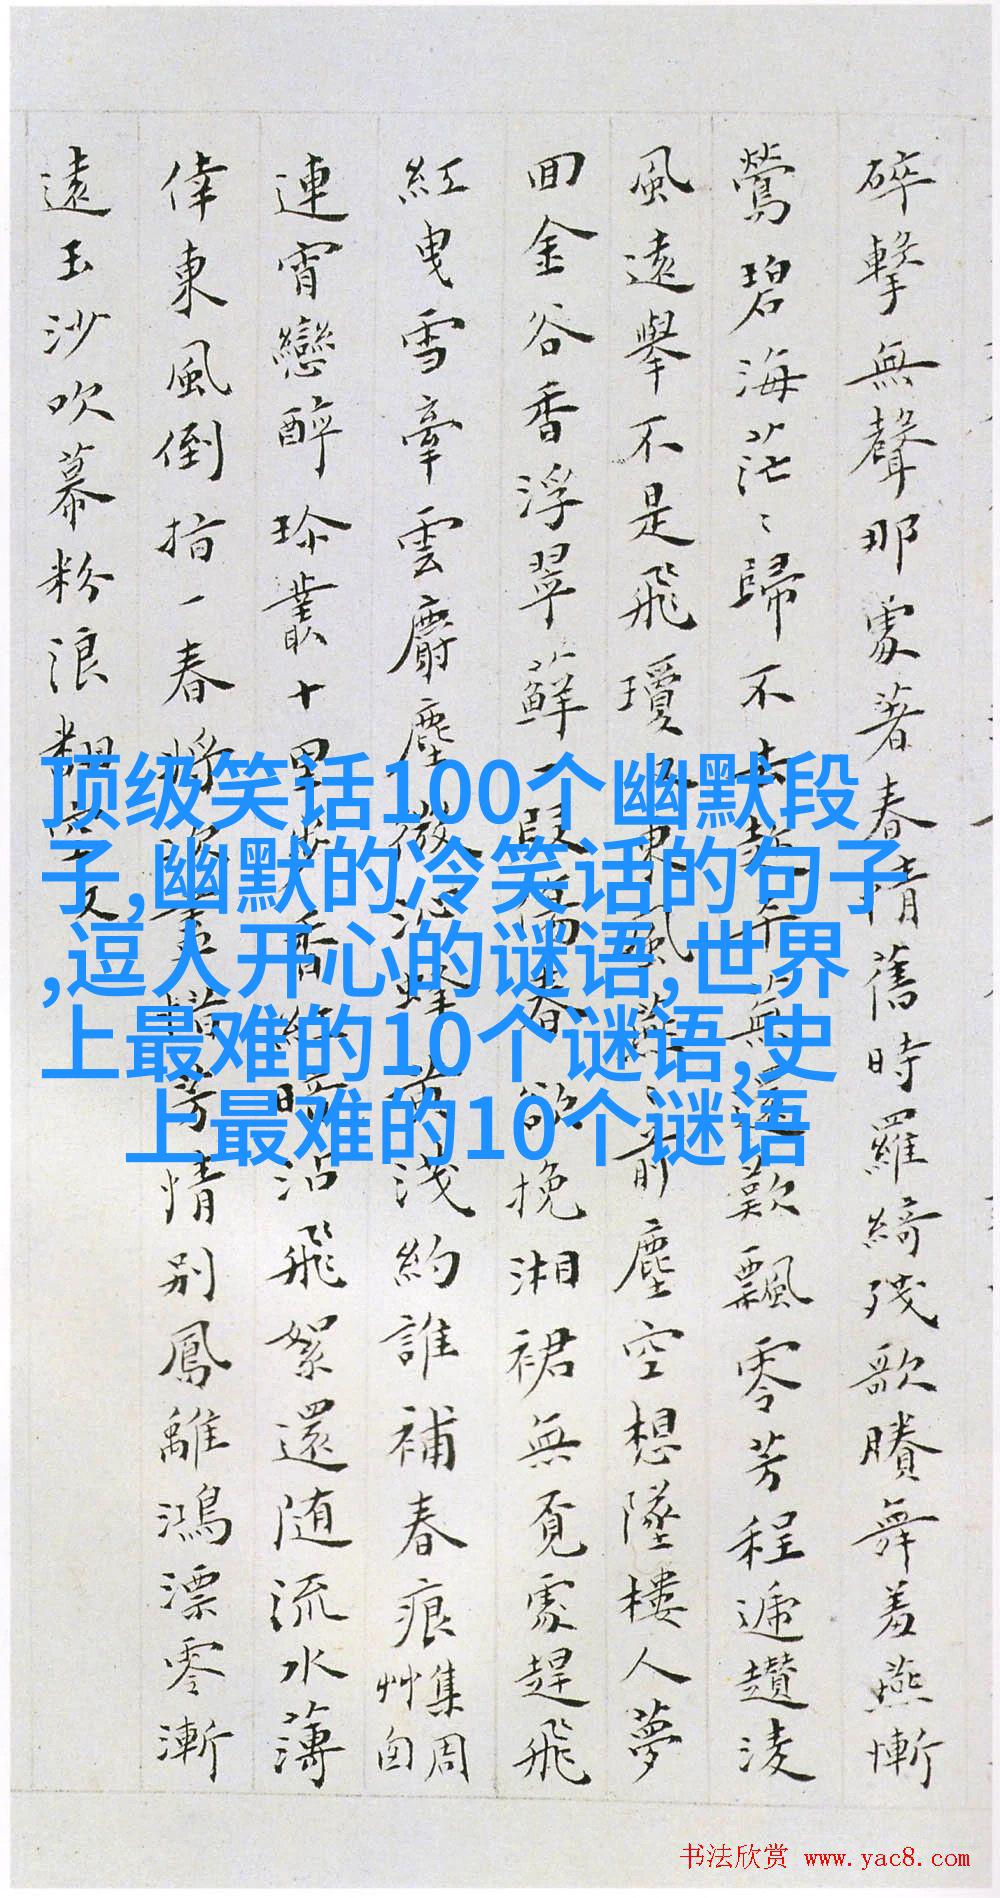 碎擊無聲那處著春情舊時羅綺殘歌賸舞羞燕慚
鶯碧海茫〻歸不去年遥歎飄零芳程遞趲淩
風遠舉不是飛瓊東風前塵空想墜樓人夢
回金谷香浮翠蘚一段傷春欲挽湘裙無覓處趕飛
紅曳雪牽雲麝塵微沁蜂黃淺約誰補春痕
集周
艸囪
連宵戀醉珍叢十里步香紅暗沾飛絮還随流水薄
倖東風倒指一春將次芳情别鳳離鴻漂零漸
遠玉沙吹幕粉浪翻空
顶级笑话100个幽默段
子,幽默的冷笑话的句子
,逗人开心的谜语,世界
上最难的10个谜语,史
上最难的10个谜语
书法欣赏 www.yac8.com